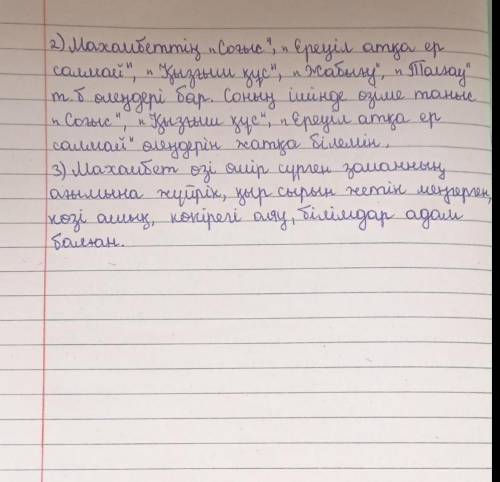 2) Махамбеттің „Соғыс", „Ереуіл атқа ер
салмай", „Қызғыш құс", „Жабығу", „Толғау"
т.б өлеңдері бар. Соның ішінде өзіме таныс
„Соғыс", „Қызғыш құс", „Ереуіл атқа ер
салмай" өлеңдерін жатқа білемін.
3) Махамбет өзі өмір сүрген заманның
ағымына жүйрік, қыр сырын жетік меңгерген,
көзі ашық, көкірегі ояу, білімдар адам
болған.